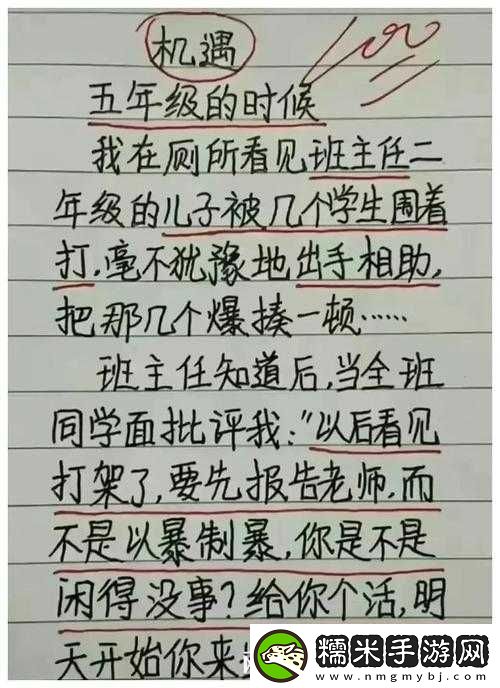 机遇
100
五年级的时候
我在厕所看见班主任二
年级的儿子被几个学生围着
打,毫不犹豫地出手相助,
把那几个爆揍一顿……
班主任知道后,当全班
同学面批评我:"以后看见
打架了,要先报告老师,而
不是以暴制暴,你是不是
闲得没事?给你个活,明
天开始你来
糯米手游网
www.nmgmybj.com